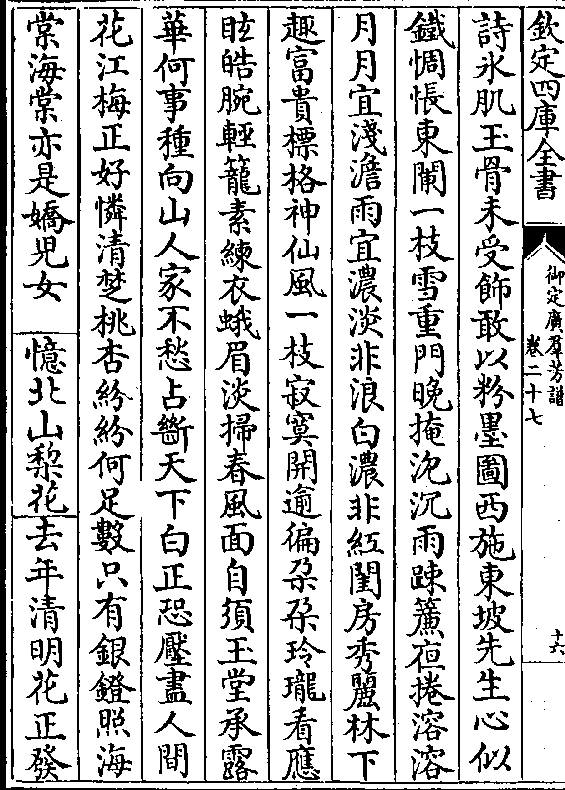 欽定四庫全書
御定廣羣芳譜
卷二十七
十六
詩氷肌玉骨未受飾敢以粉墨圖西施東坡先生心似
鐵惆悵東闌一枝雪重門晚掩沈沉雨疎簾夜捲溶溶
月月宜淺澹雨宜濃淡非浪白濃非紅閨房秀麗林下
趣富貴標格神仙風一枝寂寞開逾徧朶朶玲瓏看應
眩皓腕輕籠素練衣蛾眉淡掃春風面自須玉堂承露
華何事種向山人家不愁占斷天下白正恐壓盡人間
花江梅正好憐清楚桃杏紛紛何足數只有銀鐙照海
棠海棠亦是嬌兒女
憶北山梨花
去年清明花正發